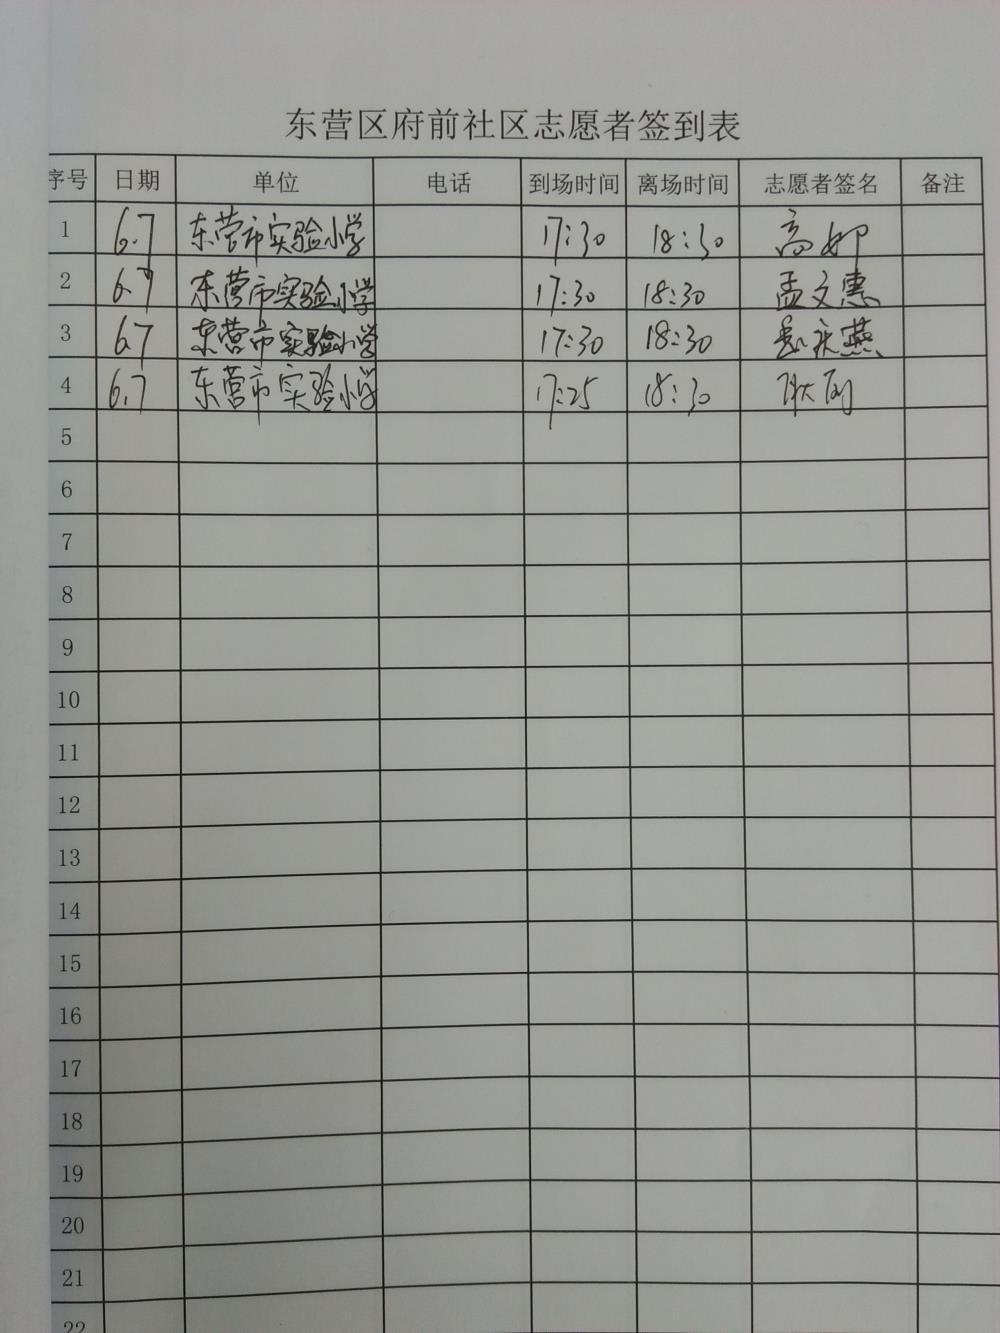 东营区府前社区志愿者签到表
序号 日期 单位 电话 到场时间 离场时间 志愿者签名 备注
1 6.7 东营市实验小学 17:30 18:30 高
2 6.7 东营市实验小学 17:30 18:30 孟文惠
3 6.7 东营市实验小学 17:30 18:30 庆燕
4 6.7 东营市实验小学 17:25 18:30
5
6
7
8
9
10
11
12
13
14
15
16
17
18
19
20
21
22